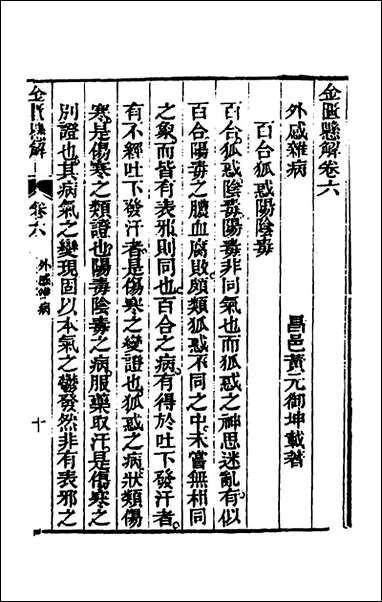 金匱懸解卷六
外感雜病
昌邑黃元御坤載著
百合狐惑陽陰毒
百合狐惑陰毒陽毒非同氣也而狐惑之神思迷亂有似
百合陽毒之膿血腐敗頗類狐惑不同之中未嘗無相同
之象而皆有表邪則同也百合之病有得於吐下發汗者
有不經吐下發汗者是傷寒之變證也狐惑之病狀類傷
寒是傷寒之類證也陽毒陰毒之病服藥取汗是傷寒之
別證也其病氣之變現固以本氣之鬱發然非有表邪之
金匱懸解
卷六
外感雜病
十